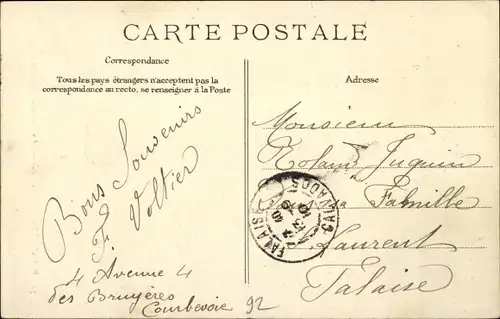 CARTE POSTALE
Correspondance
Tous les pays étrangers n'acceptent pas la
correspondance au recto, se renseigner à la Poste
Adresse
Bons Souvenirs
F. Voltier
4 Avenue 4
des Bruyères
Courbevoie 92
Monsieur
Roland Juquin
la Famille
Laurent
Falaise
FALAISE
CALVADOS